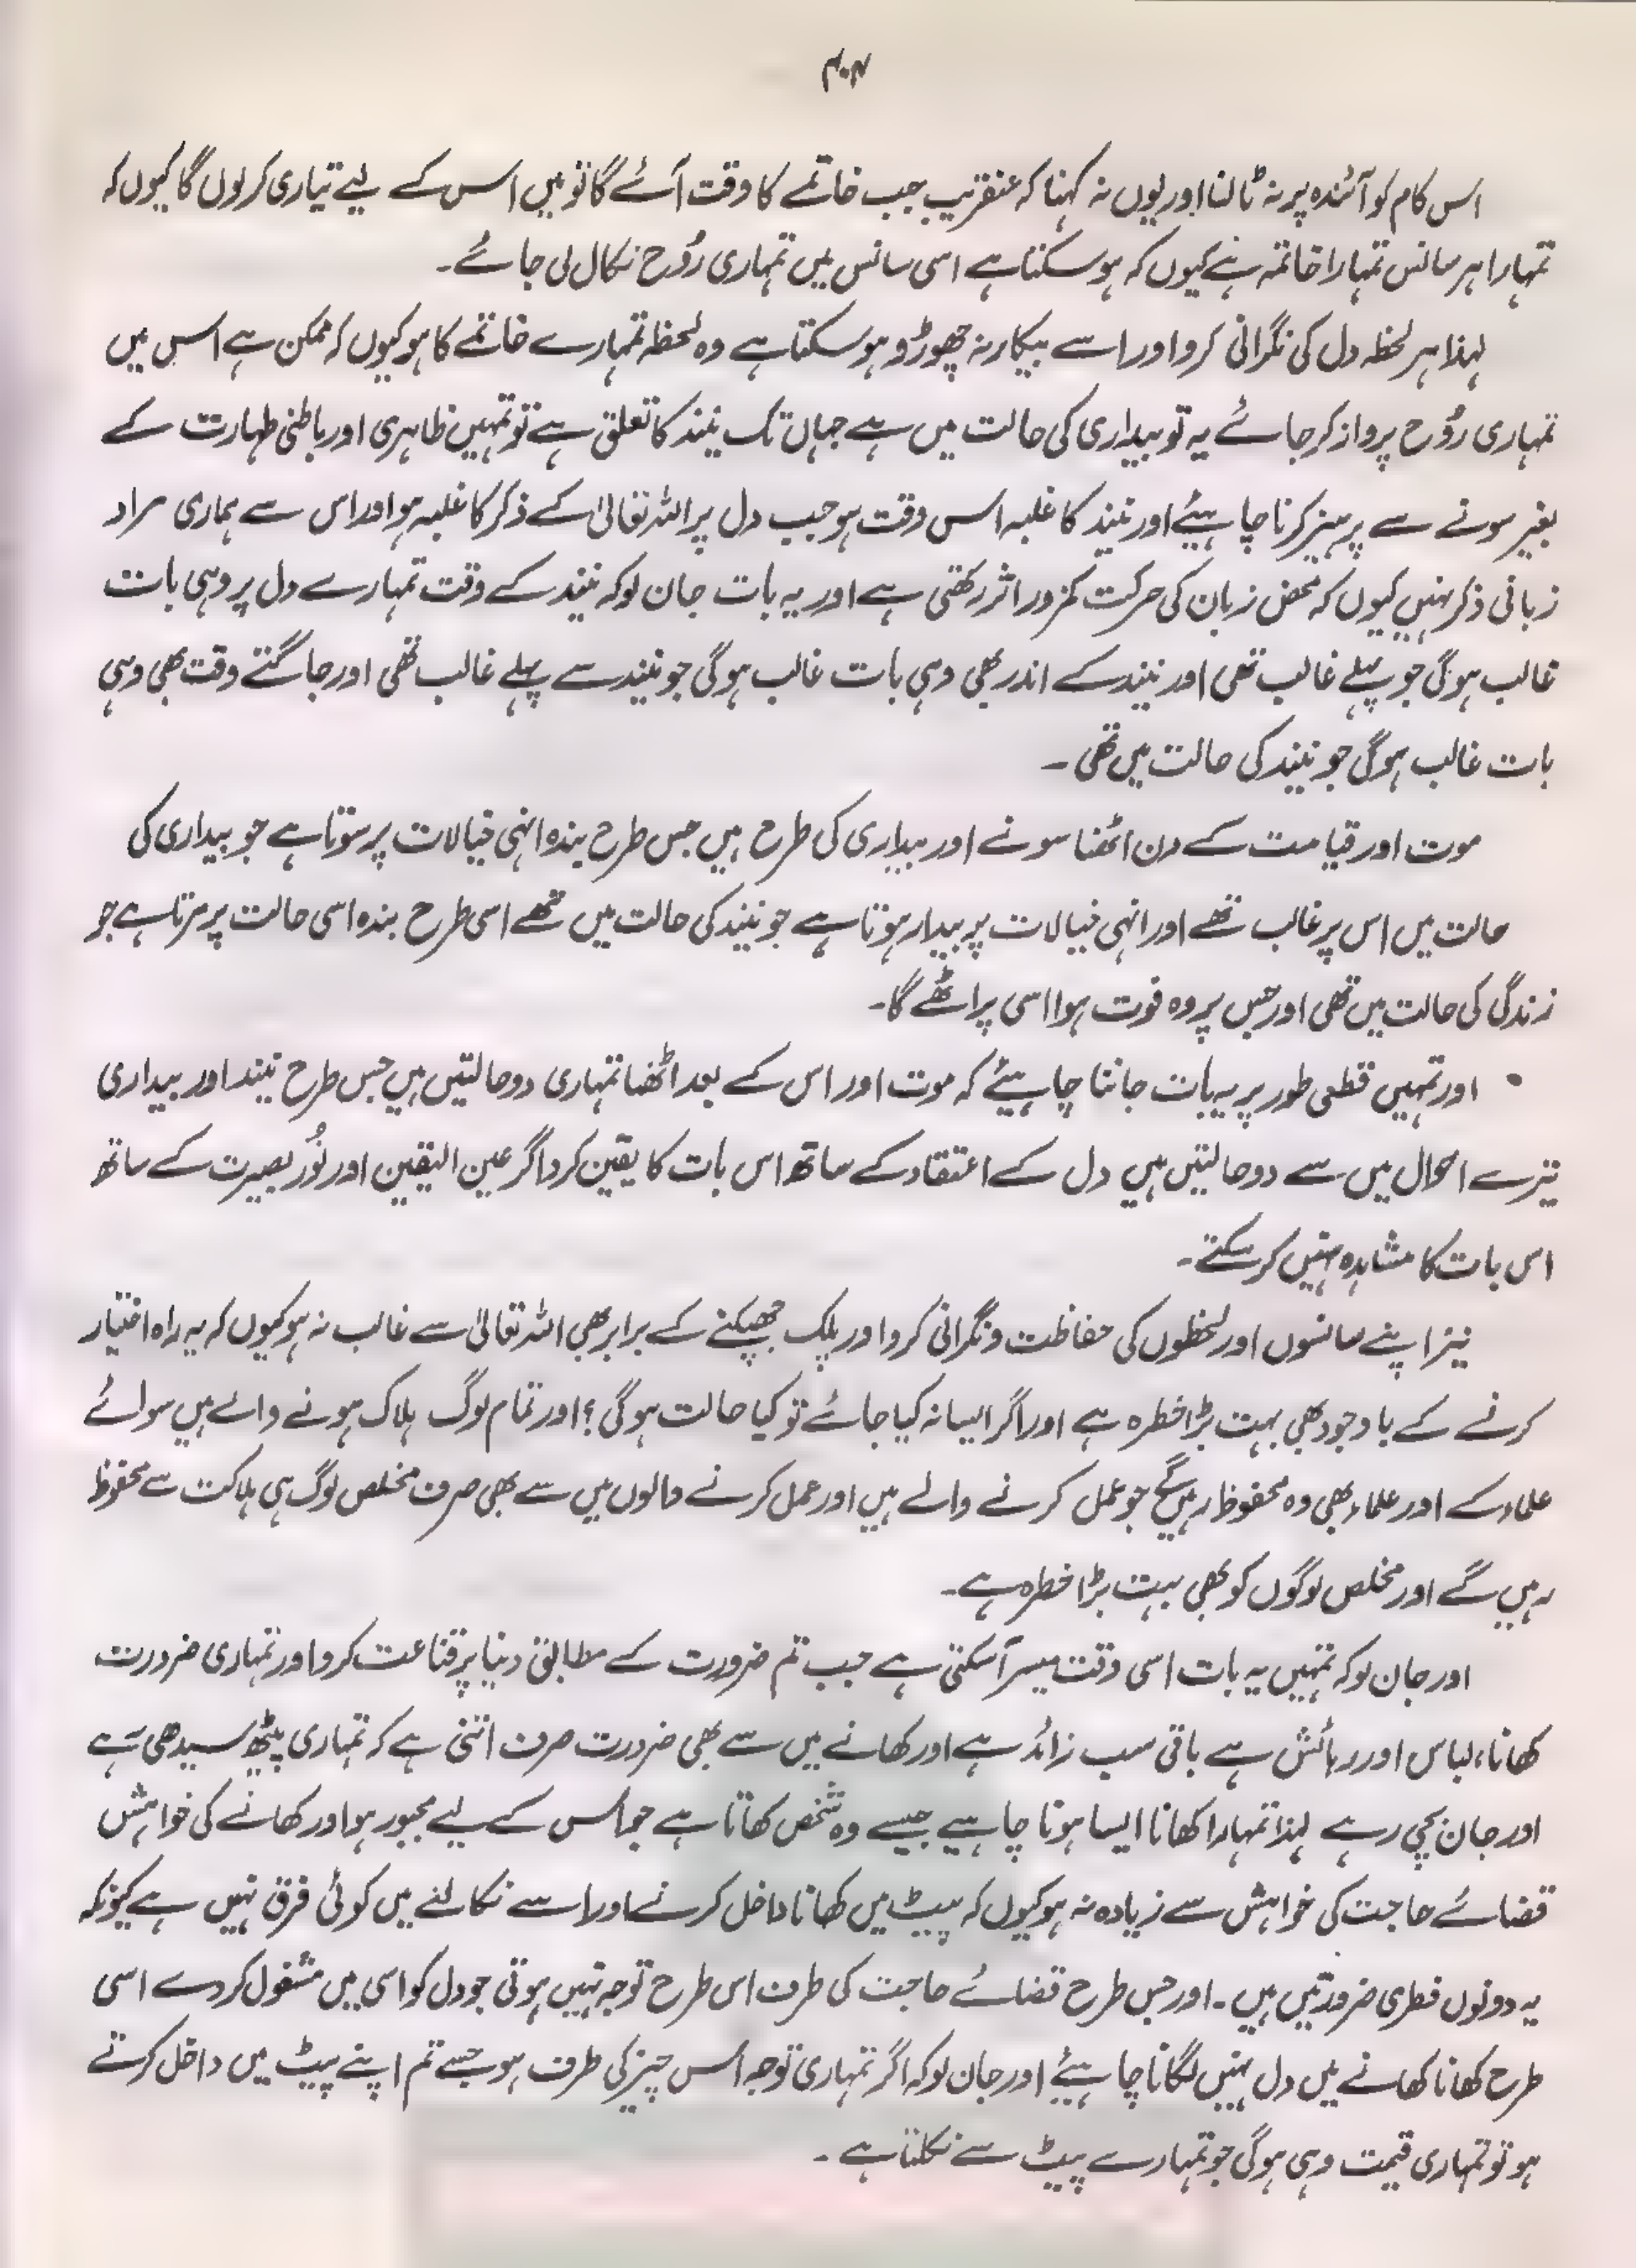 ۴۰۴
اس کام کو آئندہ پر نہ ٹالنا اور یوں نہ کہنا کہ عنقریب جب خاتمے کا وقت آئے گا تو میں اس کے لیے تیاری کر لوں گا کیوں کہ
تمہارا ہر سانس تمہارا خاتمہ ہے کیوں کہ ہو سکتا ہے اسی سانس میں تمہاری رُوح نکال لی جائے۔
لہذا ہر لحظہ دل کی نگرانی کرو اور اسے بیکار نہ چھوڑو ہو سکتا ہے وہ لحظہ تمہارے خاتمے کا ہو کیوں کہ ممکن ہے اس میں
تمہاری رُوح پرواز کر جائے یہ تو بیداری کی حالت میں ہے جہاں تک نیند کا تعلق ہے تو تمہیں ظاہری اور باطنی طہارت کے
بغیر سونے سے پرہیز کرنا چاہیئے اور نیند کا غلبہ اس وقت ہو جب دل پر اللہ تعالیٰ کے ذکر کا غلبہ ہو اور اس سے ہماری مراد
زبانی ذکر نہیں کیوں کہ محض زبان کی حرکت کمزور اثر رکھتی ہے اور یہ بات جان لو کہ نیند کے وقت تمہارے دل پر وہی بات
غالب ہوگی جو پہلے غالب تھی اور نیند کے اندر بھی وہی بات غالب ہوگی جو نیند سے پہلے غالب تھی اور جاگتے وقت بھی وہی
بات غالب ہوگی جو نیند کی حالت میں تھی ۔
موت اور قیامت کے دن اٹھنا سونے اور بیداری کی طرح ہیں جس طرح بندہ انہی خیالات پر سوتا ہے جو بیداری کی
حالت میں اس پر غالب تھے اور انہی خیالات پر بیدار ہوتا ہے جو نیند کی حالت میں تھے اسی طرح بندہ اسی حالت پر مرتا ہے جو
زندگی کی حالت میں تھی اور جس پر وہ فوت ہوا اسی پر اٹھے گا۔
• اور تمہیں قطعی طور پر یہ بات جاننا چاہیئے کہ موت اور اس کے بعد اٹھنا تمہاری دو حالتیں ہیں جس طرح نیند اور بیداری
تیرے احوال میں سے دو حالتیں ہیں دل کے اعتقاد کے ساتھ اس بات کا یقین کرو اگر عین الیقین اور نُور بصیرت کے ساتھ
اس بات کا مشاہدہ نہیں کر سکتے۔
نیز اپنے سانسوں اور لحظوں کی حفاظت و نگرانی کرو اور پلک جھپکنے کے برابر بھی اللہ تعالیٰ سے غالب نہ ہو کیوں کہ یہ راہ اختیار
کرنے کے باوجود بھی بہت بڑا خطرہ ہے اور اگر ایسا نہ کیا جائے تو کیا حالت ہوگی؟ اور تمام لوگ ہلاک ہونے والے ہیں سوائے
علماء کے اور علماء بھی وہ محفوظ رہیں گے جو عمل کرنے والے ہیں اور عمل کرنے والوں میں سے بھی صرف مخلص لوگ ہی ہلاکت سے محفوظ
رہیں گے اور مخلص لوگوں کو بھی بہت بڑا خطرہ ہے۔
اور جان لو کہ تمہیں یہ بات اسی وقت میسر آسکتی ہے جب تم ضرورت کے مطابق دنیا پر قناعت کرو اور تمہاری ضرورت
کھانا، لباس اور رہائش ہے باقی سب زائد ہے اور کھانے میں سے بھی ضرورت صرف اتنی ہے کہ تمہاری پیٹھ سیدھی رہے
اور جان بچی رہے لہذا تمہارا کھانا ایسا ہونا چاہیے جیسے وہ شخص کھاتا ہے جو اس کے لیے مجبور ہو اور کھانے کی خواہش
قضائے حاجت کی خواہش سے زیادہ نہ ہو کیوں کہ پیٹ میں کھانا داخل کرنے اور اسے نکالنے میں کوئی فرق نہیں ہے کیونکہ
یہ دونوں فطری ضرورتیں ہیں ۔ اور جس طرح قضائے حاجت کی طرف اس طرح توجہ نہیں ہوتی جو دل کو اسی میں مشغول کر دے اسی
طرح کھانا کھانے میں دل نہیں لگانا چاہیئے اور جان لو کہ اگر تمہاری توجہ اس چیز کی طرف ہو جسے تم اپنے پیٹ میں داخل کرتے
ہو تو تمہاری قیمت وہی ہوگی جو تمہارے پیٹ سے نکلتا ہے ۔